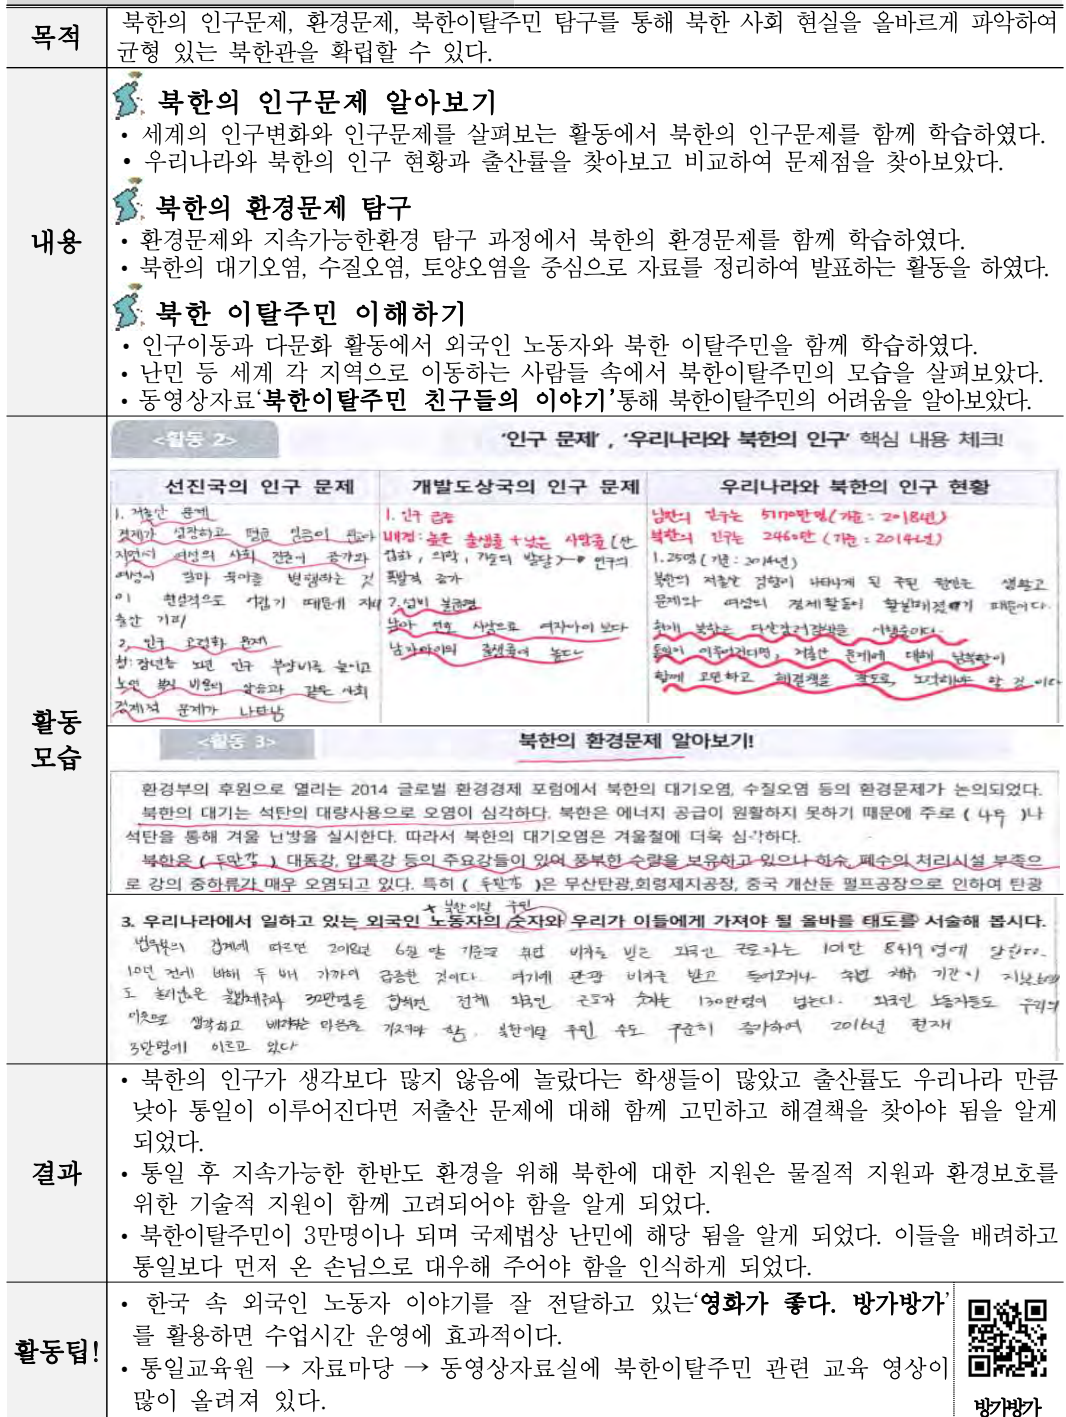 목적
북한의 인구문제, 환경문제, 북한이탈주민 탐구를 통해 북한 사회 현실을 올바르게 파악하여
균형 있는 북한관을 확립할 수 있다.
내용
북한의 인구문제 알아보기
• 세계의 인구변화와 인구문제를 살펴보는 활동에서 북한의 인구문제를 함께 학습하였다.
• 우리나라와 북한의 인구 현황과 출산률을 찾아보고 비교하여 문제점을 찾아보았다.
북한의 환경문제 탐구
• 환경문제와 지속가능한환경 탐구 과정에서 북한의 환경문제를 함께 학습하였다.
• 북한의 대기오염, 수질오염, 토양오염을 중심으로 자료를 정리하여 발표하는 활동을 하였다.
북한 이탈주민 이해하기
• 인구이동과 다문화 활동에서 외국인 노동자와 북한 이탈주민을 함께 학습하였다.
• 난민 등 세계 각 지역으로 이동하는 사람들 속에서 북한이탈주민의 모습을 살펴보았다.
• 동영상자료‘북한이탈주민 친구들의 이야기’통해 북한이탈주민의 어려움을 알아보았다.
활동
모습
<활동 2>
'인구 문제' , '우리나라와 북한의 인구' 핵심 내용 체크!
선진국의 인구 문제
1. 저출산 문제
경제가 성장하고 평균 임금이
지면서 여성의 사회 진출이 증가와
여성이 일과 육아를 병행하는 것
이 현실적으로 어렵기 때문에
출산 기피
2. 인구 고령화 문제
청·장년층 노년 인구 부양비용 높이고
노인 복지 비용의 상승과 같은 사회
경제적 문제가 나타남
개발도상국의 인구 문제
1. 인구 급증
배경: 높은 출생률 + 낮은 사망률 (산
업화, 의학, 기술의 발달) → 인구의
폭발적 증가
2. 성비 불균형
남아 선호 사상으로 여자아이 보다
남자아이의 출생률이 높다
우리나라와 북한의 인구 현황
남한의 인구는 5170만명(기준 : 2018년)
북한의 인구는 2460만 (기준 : 2014년)
1.25명 (기준 : 2014년)
북한의 저출산 경향이 나타나게 된 주된 원인은 생활고
문제와 여성의 경제활동이 활발해졌기 때문이다.
현재 북한은 다산장려정책을 시행중이다.
통일이 이루어진다면, 저출산 문제에 대해 남북한이
함께 고민하고 해결책을 찾도록, 노력해야 할 것 이다
<활동 3>
북한의 환경문제 알아보기!
환경부의 후원으로 열리는 2014 글로벌 환경경제 포럼에서 북한의 대기오염, 수질오염 등의 환경문제가 논의되었다.
북한의 대기는 석탄의 대량사용으로 오염이 심각하다. 북한은 에너지 공급이 원활하지 못하기 때문에 주로 ( 나무 )나
석탄을 통해 겨울 난방을 실시한다. 따라서 북한의 대기오염은 겨울철에 더욱 심각하다.
북한은 ( 두만강 ) 대동강, 압록강 등의 주요강들이 있어 풍부한 수량을 보유하고 있으나 하수, 폐수의 처리시설 부족으
로 강의 중하류가 매우 오염되고 있다. 특히 ( 두만강 )은 무산탄광,회령제지공장, 중국 개산둔 펄프공장으로 인하여 탄광
+ 북한이탈 주민
3. 우리나라에서 일하고 있는 외국인 노동자의 숫자와 우리가 이들에게 가져야 될 올바를 태도를 서술해 봅시다.
법무부의 집계에 따르면 2018년 6월 말 기준으로 취업 비자를 받은 외국인 근로자는 101만 8419 명에 달한다.
10년 전에 비해 두 배 가까이 급증한 것이다. 여기에 관광 비자를 받고 들어오거나 취업 체류 기간이
도 불법체류자 32만명을 합하면 전체 외국인 근로자 숫자는 130만명이 넘는다. 외국인 노동자들도 우리의
이웃으로 생각하고 배려하는 마음을 가져야 함. 북한이탈 주민 수도 꾸준히 증가하여 2016년 현재
3만명에 이르고 있다
결과
• 북한의 인구가 생각보다 많지 않음에 놀랐다는 학생들이 많았고 출산률도 우리나라 만큼
낮아 통일이 이루어진다면 저출산 문제에 대해 함께 고민하고 해결책을 찾아야 됨을 알게
되었다.
• 통일 후 지속가능한 한반도 환경을 위해 북한에 대한 지원은 물질적 지원과 환경보호를
위한 기술적 지원이 함께 고려되어야 함을 알게 되었다.
• 북한이탈주민이 3만명이나 되며 국제법상 난민에 해당 됨을 알게 되었다. 이들을 배려하고
통일보다 먼저 온 손님으로 대우해 주어야 함을 인식하게 되었다.
활동팁!
• 한국 속 외국인 노동자 이야기를 잘 전달하고 있는‘영화가 좋다. 방가방가’
를 활용하면 수업시간 운영에 효과적이다.
• 통일교육원 → 자료마당 → 동영상자료실에 북한이탈주민 관련 교육 영상이
많이 올려져 있다.
방가방가